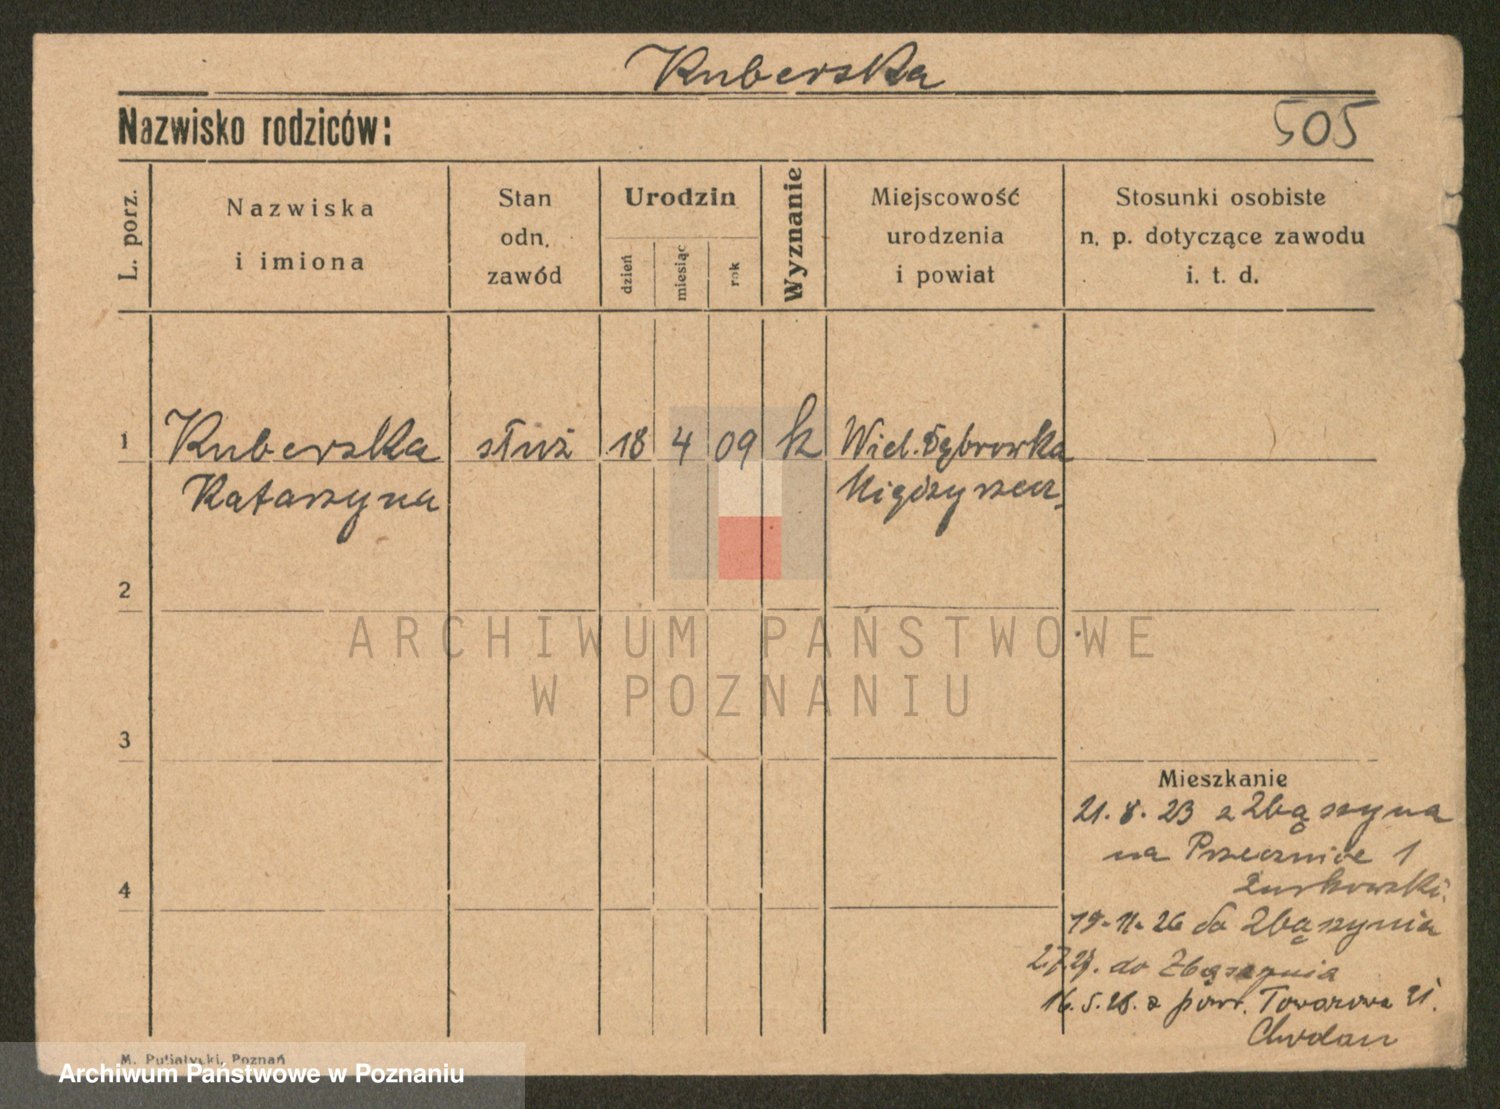 Kuberska
Nazwisko rodziców:
505
L. porz.
Nazwiska
i imiona
Stan
odn.
zawód
Urodzin
dzień
miesiąc
rok
Wyznanie
Miejscowość
urodzenia
i powiat
Stosunki osobiste
n. p. dotyczące zawodu
i. t. d.
1
Kuberska
Katarzyna
służ
18
4
09
k
Wiel. Dąbrowka
Międzyrzecz
2
ARCHIWUM PAŃSTWOWE
W POZNANIU
3
Mieszkanie
21. 8. 23 z Zbąszyna
na Przecznice 1
Żurkowski.
19-11-26 do Zbąszynia
2.7.27. do Zbąszynia
16.5.28. z pow. Towarowa 21.
Chwdan
4
M. Putiatycki, Poznań
Archiwum Państwowe w Poznaniu